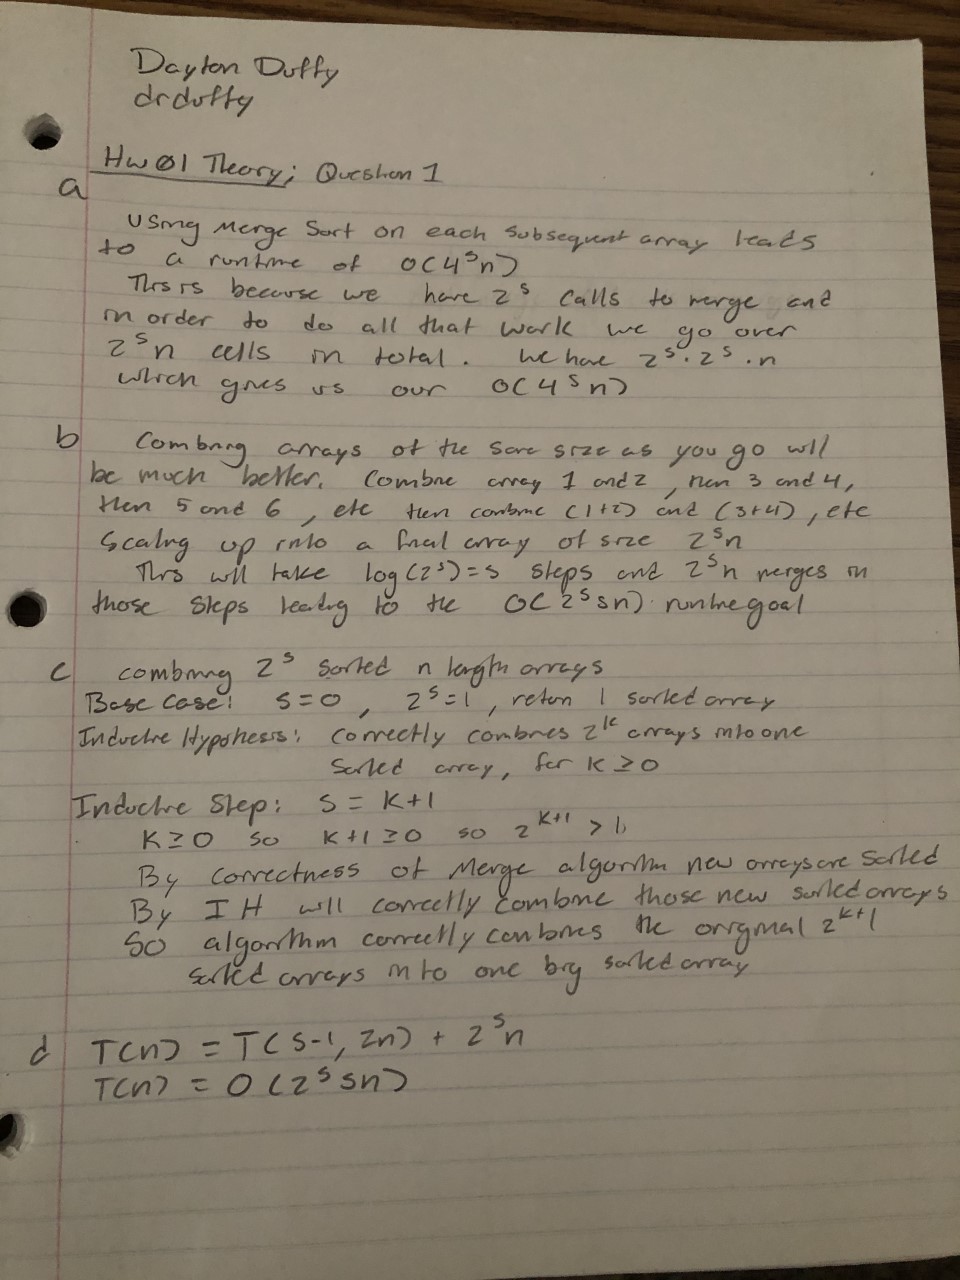 Dayton Duffy
drduffy
Hw 01 Theory; Question 1
a
Using Merge Sort on each subsequent array leads
to a runtime of O(4^s n)
This is because we have 2^s calls to merge and
in order to do all that work we go over
2^s n cells in total. We have 2^s · 2^s · n
which gives us our O(4^s n)
b Combining arrays of the same size as you go will
be much better. Combine array 1 and 2, then 3 and 4,
then 5 and 6, etc then combine (1+2) and (3+4), etc
Scaling up into a final array of size 2^s n
This will take log(2^s) = s steps and 2^s n merges in
those steps leading to the O(2^s sn) runtime goal
c combining 2^s sorted n length arrays
Base Case: s=0, 2^s=1, return 1 sorted array
Inductive Hypothesis: correctly combines 2^k arrays into one
sorted array, for k ≥ 0
Inductive Step: s = k+1
k ≥ 0 so k+1 ≥ 0 so 2^k+1 > 1,
By correctness of Merge algorithm new arrays are sorted
By IH will correctly combine those new sorted arrays
So algorithm correctly combines the original 2^k+1
sorted arrays into one big sorted array
d T(n) = T(s-1, 2n) + 2^s n
T(n) = O(2^s sn)